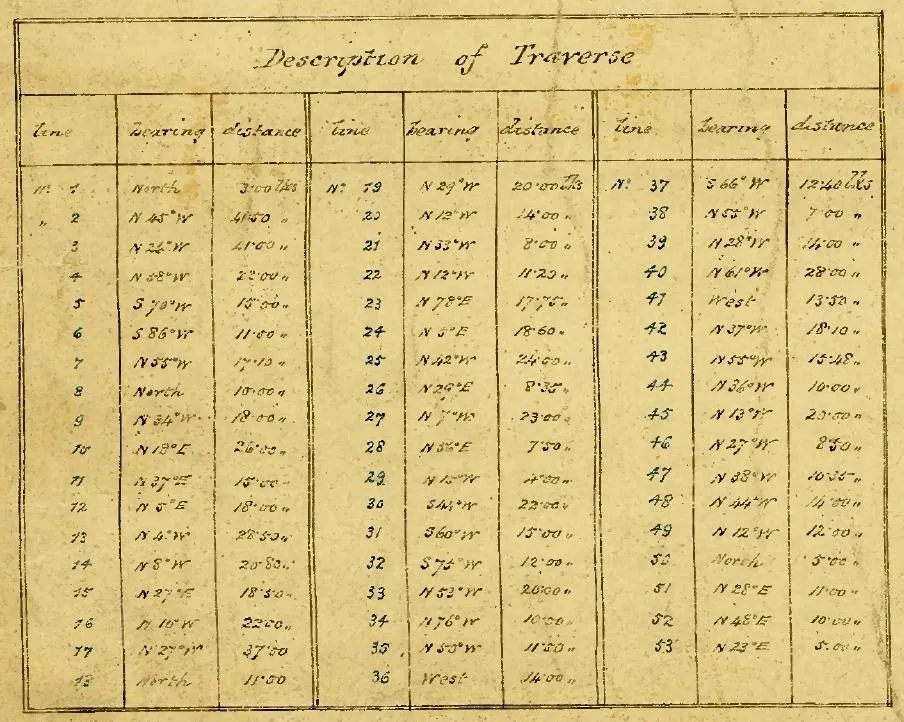 Description of Traverse
line bearing distance line bearing distance line bearing distance
No 1 North 3·00 lks No 19 N 29° W 20·00 lks No 37 S 66° W 12·40 lks
„ 2 N 45° W 41·50 „ 20 N 12° W 14·00 „ 38 N 55° W 7·00 „
3 N 26° W 41·00 „ 21 N 33° W 8·00 „ 39 N 28° W 14·00 „
4 N 58° W 22·00 „ 22 N 12° W 11·20 „ 40 N 61° W 28·00 „
5 S 70° W 15·00 „ 23 N 78° E 17·75 „ 41 West 13·50 „
6 S 86° W 11·00 „ 24 N 5° E 18·60 „ 42 N 37° W 18·10 „
7 N 55° W 17·10 „ 25 N 42° W 24·00 „ 43 N 55° W 15·48 „
8 North 10·00 „ 26 N 29° E 8·35 „ 44 N 36° W 10·00 „
9 N 34° W 18·00 „ 27 N 7° W 23·00 „ 45 N 13° W 20·00 „
10 N 19° E 26·00 „ 28 N 56° E 7·50 „ 46 N 27° W 8·50 „
11 N 37° E 15·00 „ 29 N 15° W 4·00 „ 47 N 38° W 10·35 „
12 N 5° E 18·00 „ 30 S 44° W 22·00 „ 48 N 44° W 14·00 „
13 N 4° W 28·50 „ 31 S 60° W 15·00 „ 49 N 12° W 12·00 „
14 N 8° W 20·80 „ 32 S 75° W 12·00 „ 50 North 5·00 „
15 N 27° E 18·50 „ 33 N 53° W 20·00 „ 51 N 28° E 11·00 „
16 N 10° W 22·00 „ 34 N 76° W 10·00 „ 52 N 48° E 10·00 „
17 N 27° W 37·50 35 N 50° W 11·50 „ 53 N 23° E 5·00 „
18 North 11·00 36 West 14·00 „